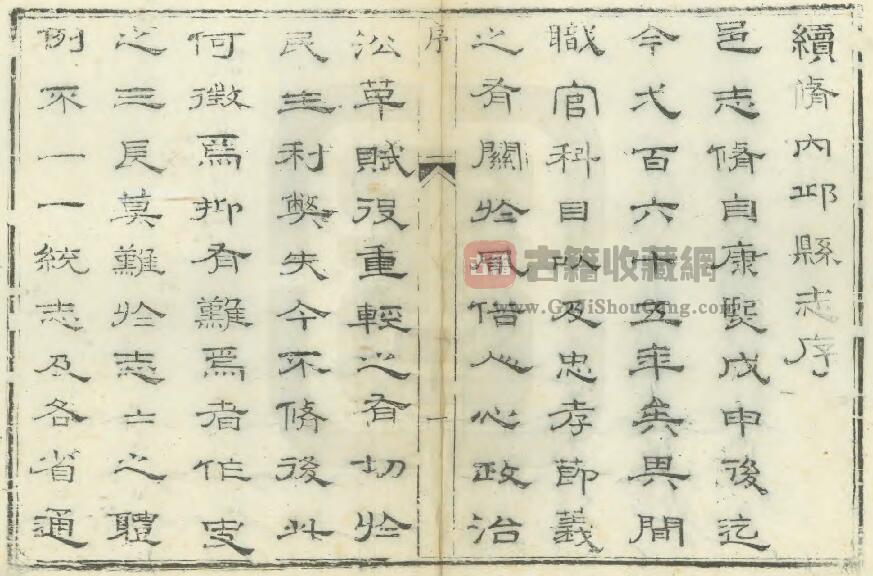 續脩內邱縣志序
邑志脩自康熙戊申後迄
今弌百六十五年矣其間
職官科目以及忠孝節義
之有關於風俗人心政治
序
一
沿革賦役重輕之有切於
民生利弊失今不脩後此
何徵焉抑有難焉者作史
之三長莫難於志〻之體
例不一一統志及各省通
古籍 古籍收藏網
www.GuJiShouCang.com